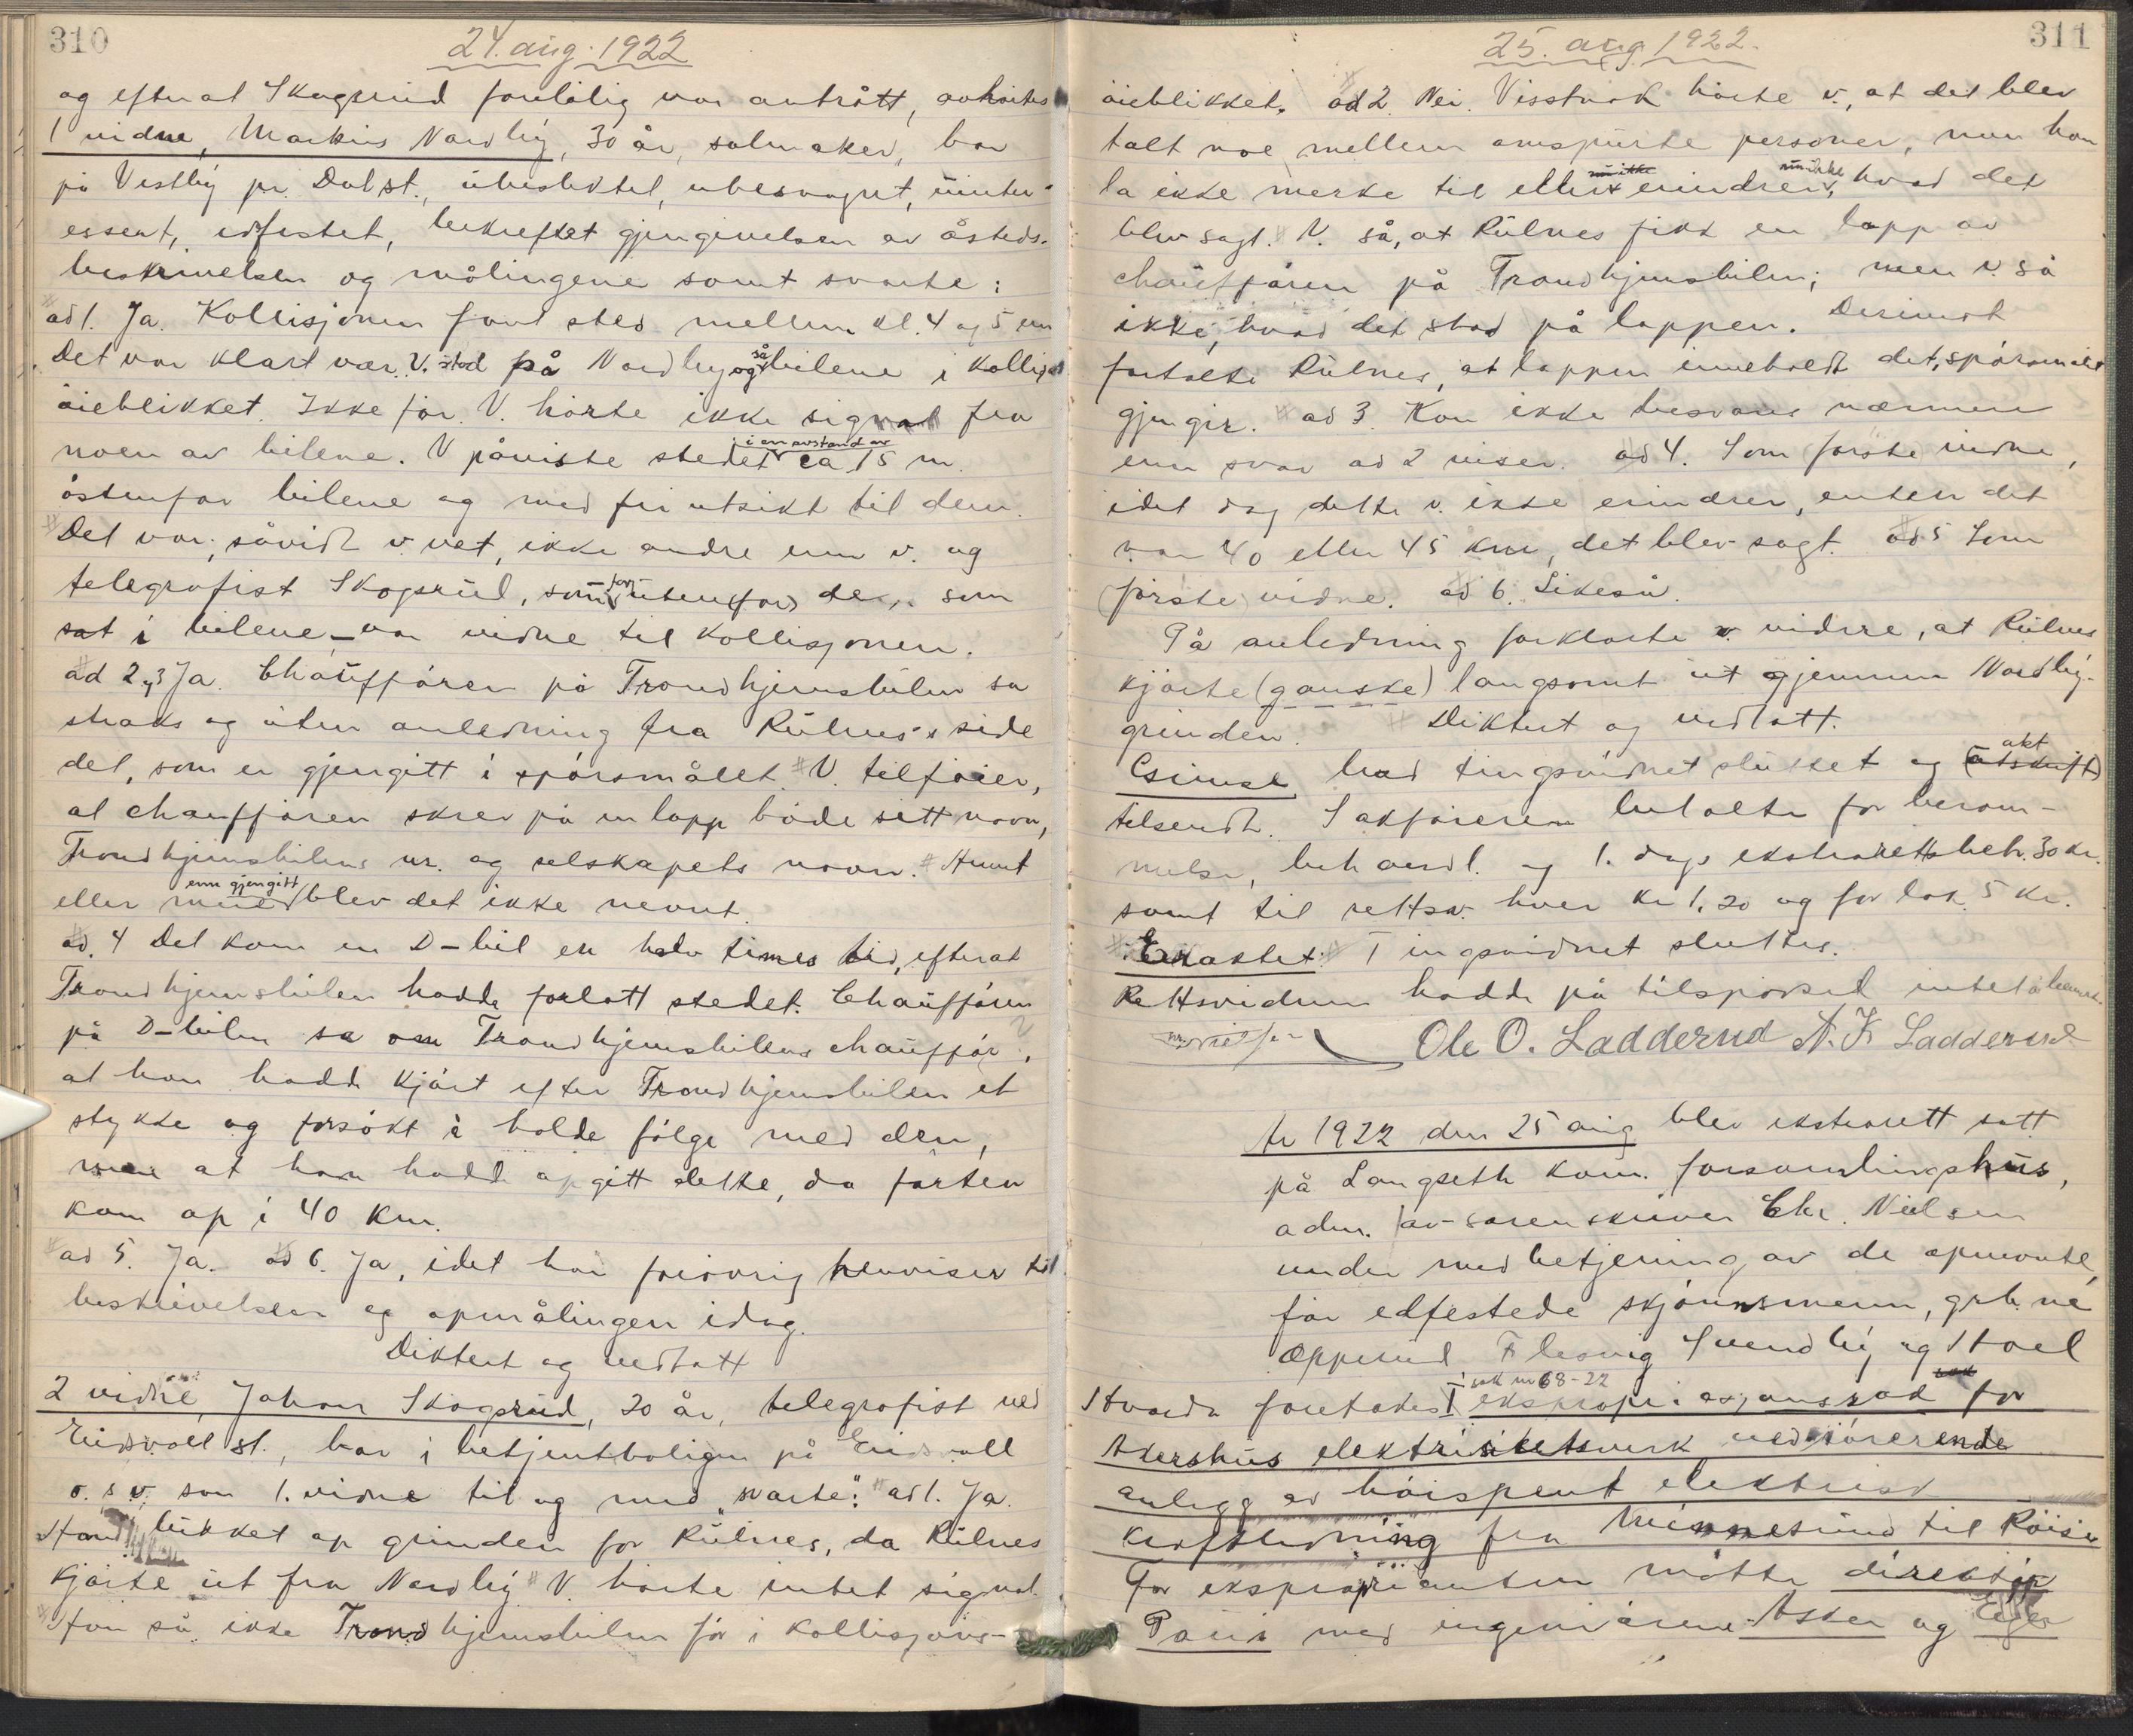 310
24. aug. 1922
og efterat Skogsrud foreløbig var antrått, avhørtes
1 vidne, Markus Nordby, 30 år, salmaker, bor
på Vestby pr. Dal st., ubeslektet, ubesvogret, uinter-
essert, edfestet, bekreftet gjengivelsen av åsteds-
beskrivelsen og målingene samt svarte:
ad 1. Ja. Kollisjonen fant sted mellem kl. 4 og 5 em
Det var klart vær. V. stod på Nordby og så bilene i kollisjons
øieblikket. Ikke før. V. hørte ikke signal fra
noen av bilene. V påviste stedet i en avstand av ca 15 m.
østenfor bilene og med fri utsikt til dem.
Det var, såvidt v. vet, ikke andre enn v. og
telegrafist Skogsrud, som – foruten de, som
sat i bilene – var vidne til kollisjonen.
ad 2 og 3 Ja. Chaufføren på Trondhjemsbilen sa
straks og uten anledning fra Rulnes's side
det, som er gjengitt i spørsmålet. V. tilføier,
at chaufføren skrev på en lapp både sitt navn,
Trondhjemsbilens nr. og selskapets navn. Annet
eller mere enn gjengitt blev det ikke nevnt.
ad. 4 Det kom en D-bil en halv times tid, efterat
Trondhjemsbilen hadde forlatt stedet. Chaufføren
på D-bilen sa om Trondhjemsbilens chauffør,
at han hadde kjørt efter Trondhjemsbilen et
stykke og forsøkt å holde følge med den,
men at han hadde opgitt dette, da farten
kom op i 40 km.
ad 5. Ja. ad 6. Ja, idet han forøvrig henviser til
beskrivelsen og opmålingen idag.
Diktert og vedtatt
2 vidne, Johan Skogsrud, 20 år, telegrafist ved
Eidsvoll st., bor i betjentboligen på Eidsvoll
o.s.v. som 1. vidne til og med "svarte": ad 1. Ja.
Han lukket op grinden for Rulnes, da Rulnes
kjørte ut fra Nordby. V. hørte intet signal.
Han så ikke Trondhjemsbilen før i kollisjons-
311
25. aug. 1922.
øieblikket. ad 2. Nei. Visstnok hørte v., at det blev
talt noe mellem omspurte personer, men han
la ikke merke til eller erindrer nu ikke, hvad det
blev sagt. V. så, at Rulnes fikk en lapp av
chaufføren på Trondhjemsbilen; men v. så
ikke, hvad det stod på lappen. Derimot
fortalte Rulnes, at lappen inneholdt det, spørsmålet
gjengir. ad 3. Kan ikke besvares nærmere
enn svar ad 2 viser. ad 4. Som første vidne,
idet dog dette v. ikke erindrer, enten det
var 40 eller 45 km, det blev sagt. ad 5 Som
første vidne. ad 6. Likeså.
På anledning forklarte v. videre, at Rulnes
kjørte (ganske) langsomt ut gjennem Nordby-
grinden. Diktert og vedtatt.
bad tingsvidnet sluttet og akt
tilsendt. Sakføreren betalte for beram-
melse, behandl. og 1. dags ekstrarettsbeh. 30 kr.
samt til rettsv. hver kr 1,20 og for lok. 5 kr.
Eraktet: Tingsvidnet sluttes.
Rettsvidnene hadde på tilspørsel intet å bemerke.
Ole O. Ladderud N. K. Ladderud
År 1922 den 25 aug blev ekstrarett satt
på Langseth kom. forsamlingshus,
adm. av sorenskriver Chr. Nielsen
under medbetjening av de opnevnte,
før edfestede skjønnsmenn, grb. ne
Opperud Flesvig Svendby og Stoel
Hvorda foretokes I sak nr 68-22 ekspropriasjonssak for
Akershus elektrisitetsverk vedrørerende
anlegg av høispent elektrisk
kraftledning fra Minnesund til Røise
For eksproprianten møtte direktør
Paus med ingeniørene Asker og